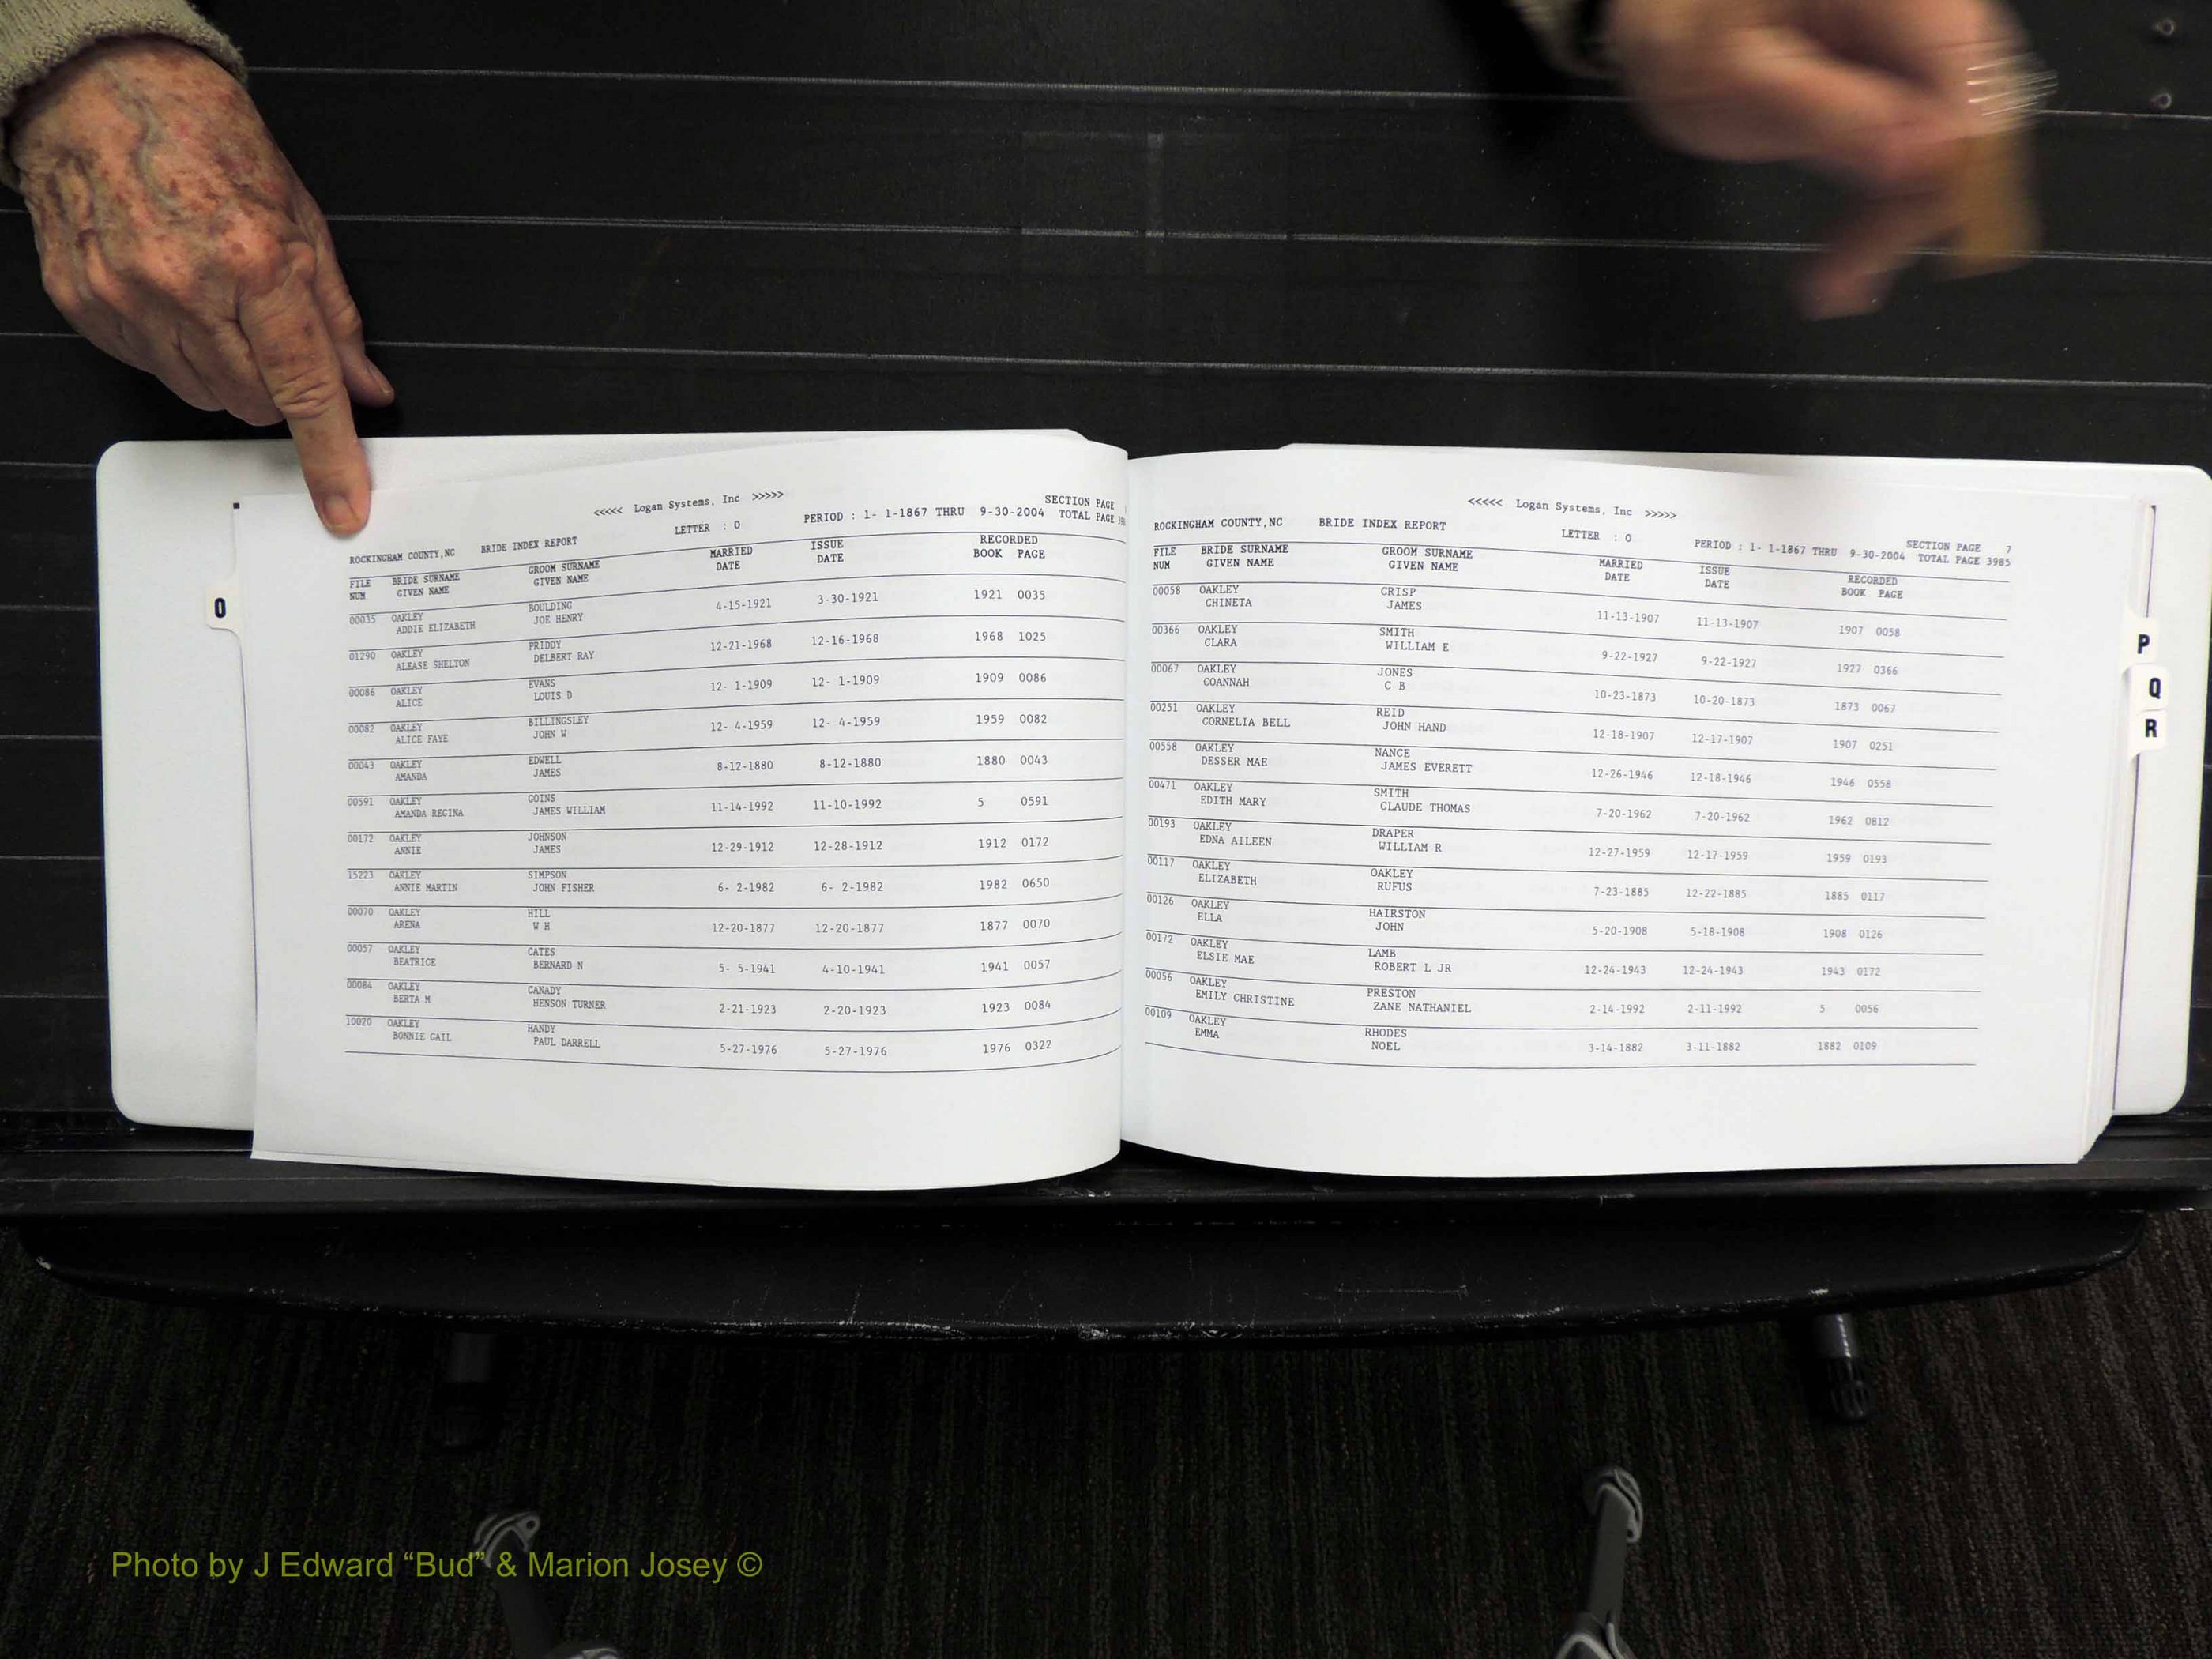 <<<<< Logan Systems, Inc >>>>>
ROCKINGHAM COUNTY,NC BRIDE INDEX REPORT LETTER : O PERIOD : 1- 1-1867 THRU 9-30-2004 SECTION PAGE
TOTAL PAGE
FILE BRIDE SURNAME GROOM SURNAME MARRIED ISSUE RECORDED
NUM GIVEN NAME GIVEN NAME DATE DATE BOOK PAGE
00035 OAKLEY BOULDING
ADDIE ELIZABETH JOE HENRY 4-15-1921 3-30-1921 1921 0035
01290 OAKLEY PRIDDY
ALEASE SHELTON DELBERT RAY 12-21-1968 12-16-1968 1968 1025
00086 OAKLEY EVANS
ALICE LOUIS D 12- 1-1909 12- 1-1909 1909 0086
00082 OAKLEY BILLINGSLEY
ALICE FAYE JOHN W 12- 4-1959 12- 4-1959 1959 0082
00043 OAKLEY EDWELL
AMANDA JAMES 8-12-1880 8-12-1880 1880 0043
00591 OAKLEY GOINS
AMANDA REGINA JAMES WILLIAM 11-14-1992 11-10-1992 5 0591
00172 OAKLEY JOHNSON
ANNIE JAMES 12-29-1912 12-28-1912 1912 0172
15223 OAKLEY SIMPSON
ANNIE MARTIN JOHN FISHER 6- 2-1982 6- 2-1982 1982 0650
00070 OAKLEY HILL
ARENA W H 12-20-1877 12-20-1877 1877 0070
00057 OAKLEY CATES
BEATRICE BERNARD N 5- 5-1941 4-10-1941 1941 0057
00084 OAKLEY CANADY
BERTA M HENSON TURNER 2-21-1923 2-20-1923 1923 0084
10020 OAKLEY HANDY
BONNIE GAIL PAUL DARRELL 5-27-1976 5-27-1976 1976 0322
O
<<<<< Logan Systems, Inc >>>>>
ROCKINGHAM COUNTY,NC BRIDE INDEX REPORT LETTER : O PERIOD : 1- 1-1867 THRU 9-30-2004 SECTION PAGE 7
TOTAL PAGE 3985
FILE BRIDE SURNAME GROOM SURNAME MARRIED ISSUE RECORDED
NUM GIVEN NAME GIVEN NAME DATE DATE BOOK PAGE
00058 OAKLEY CRISP
CHINETA JAMES 11-13-1907 11-13-1907 1907 0058
00366 OAKLEY SMITH
CLARA WILLIAM E 9-22-1927 9-22-1927 1927 0366
00067 OAKLEY JONES
COANNAH C B 10-23-1873 10-20-1873 1873 0067
00251 OAKLEY REID
CORNELIA BELL JOHN HAND 12-18-1907 12-17-1907 1907 0251
00558 OAKLEY NANCE
DESSER MAE JAMES EVERETT 12-26-1946 12-18-1946 1946 0558
00471 OAKLEY SMITH
EDITH MARY CLAUDE THOMAS 7-20-1962 7-20-1962 1962 0812
00193 OAKLEY DRAPER
EDNA AILEEN WILLIAM R 12-27-1959 12-17-1959 1959 0193
00117 OAKLEY OAKLEY
ELIZABETH RUFUS 7-23-1885 12-22-1885 1885 0117
00126 OAKLEY HAIRSTON
ELLA JOHN 5-20-1908 5-18-1908 1908 0126
00172 OAKLEY LAMB
ELSIE MAE ROBERT L JR 12-24-1943 12-24-1943 1943 0172
00056 OAKLEY PRESTON
EMILY CHRISTINE ZANE NATHANIEL 2-14-1992 2-11-1992 5 0056
00109 OAKLEY RHODES
EMMA NOEL 3-14-1882 3-11-1882 1882 0109
P
Q
R
Photo by J Edward “Bud” & Marion Josey ©